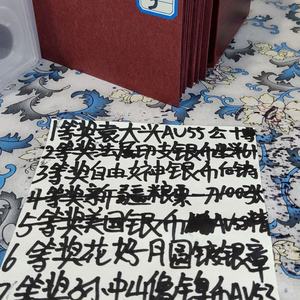 5
1等奖袁大头AU55公博
2等奖法属印支银币
3等奖自由女神银币
4等奖新疆粮票一刀100张
5等奖美国银币AU53精
6等奖花好月圆银章
7等奖孙中山像镍币AU53